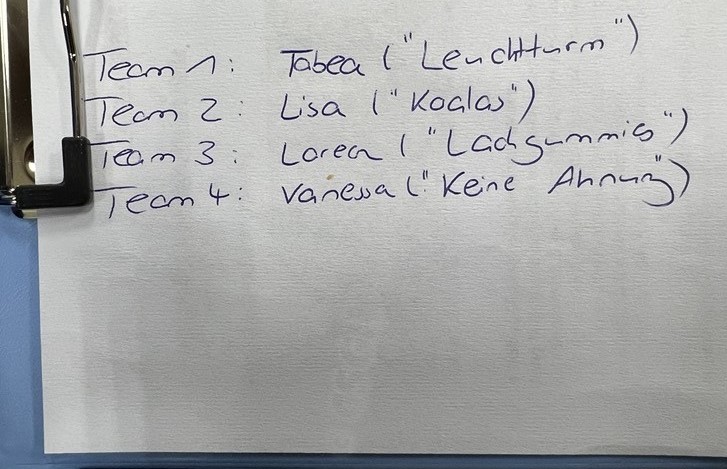 Team 1: Tabea ("Leuchtturm")
Team 2: Lisa ("Koalas")
Team 3: Lorea ("Lachgummies")
Team 4: Vanessa ("Keine Ahnung")